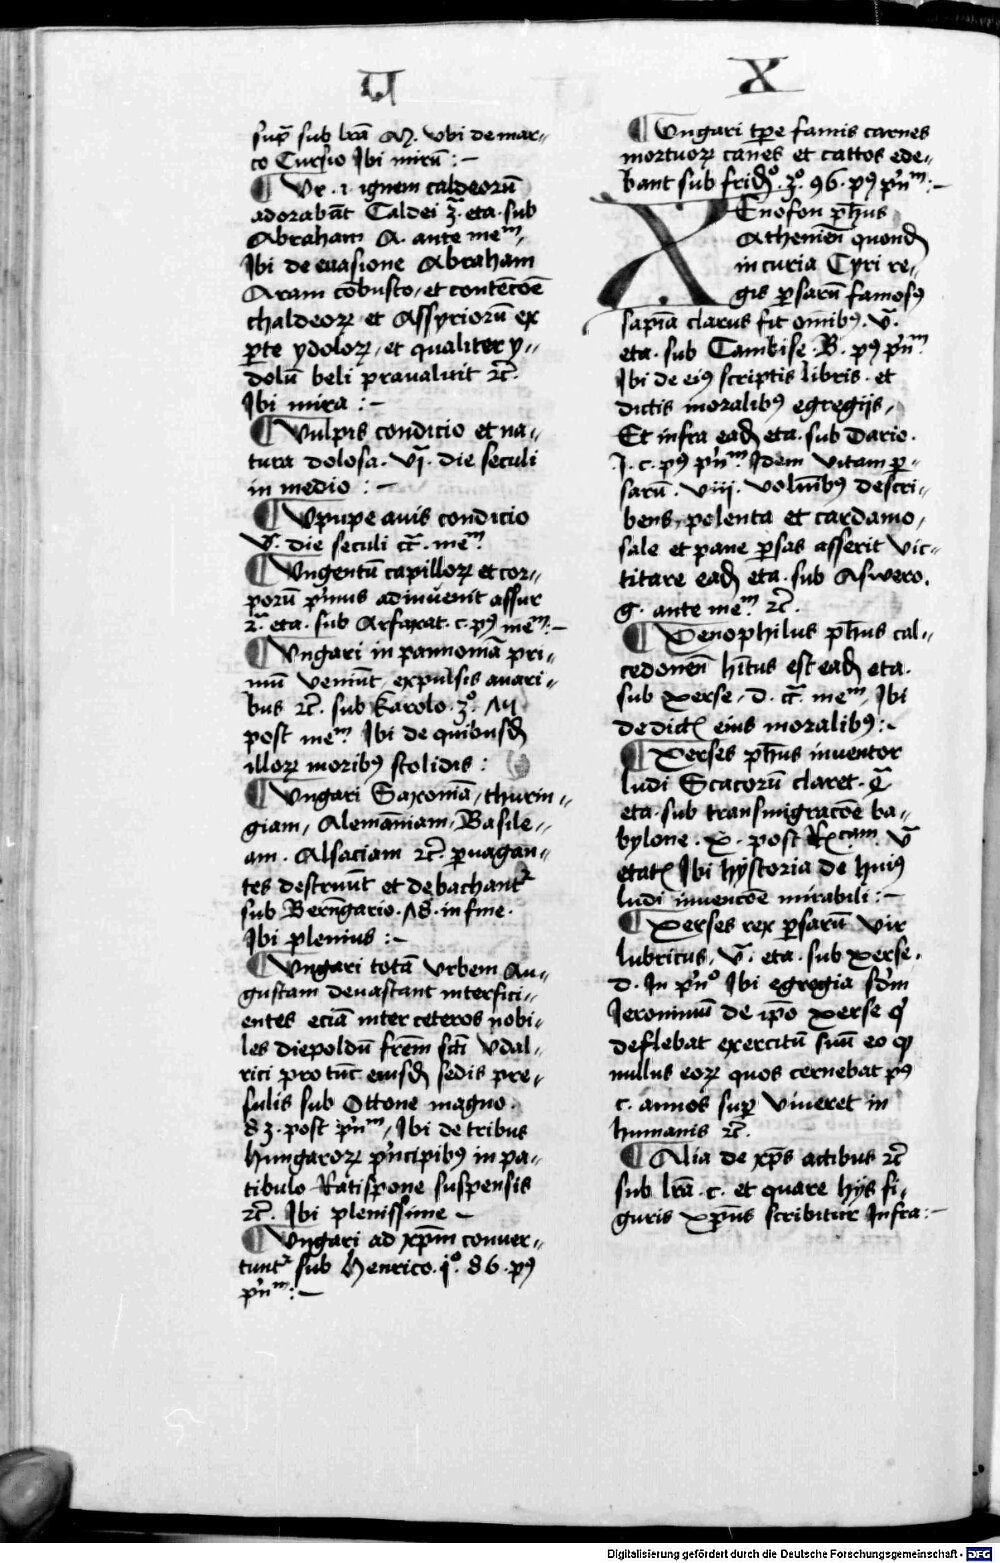 U
sup̄ sub lr̄a M. Vbi de mar-
co Cursio Ibi mirū :-
¶ Vr .i. ignem caldeorū
adorabāt Caldei 3ᷓ. eta. sub
Abraham A. ante meᵐ,
Ibi de euasione Abraham
Aram cōbusto, et contēcōē
chaldeoꝝ et Assyriorū ex
ꝑte ydoloꝝ, et qualiter y-
dolū beli preualuit ⁊c̄.
Ibi mira :-
¶ Vulpis condicio et na-
tura dolosa. vj. die seculi
in medio :-
¶ Vpupe auis condicio
v. die seculi cᷓ. meᵐ
¶ Vngentū capilloꝝ et cor-
porū p̓mus adinuenit assur
2ᷓ. eta. sub Arfaxat. c. pꝰ meᵐ:-
¶ Vngari in pannoniā pri-
mū veniūt, expulsis auari-
bus ⁊c̄. sub Karolo. 3º.
post meᵐ Ibi de quibusdꝫ
illoꝝ moribꝰ stolidis :
¶ Vngari Saxoniā, thurin-
giam, Alemāniam, Basile-
am. Alsaciam ⁊c̄. ꝑuagan-
tes destruūt et debachantᷣ
sub Berēngario. 18. in fine.
Ibi plenius :-
¶ Vngari totā vrbem Au-
gustam deuastant interfici-
entes eciā inter ceteros nobi-
les diepoldū frēm sc̄ti Vdal-
rici pro tūc eiusdꝫ sedis pre-
sulis sub Ottone magno.
83. post p̓nᵐ, Ibi de tribus
hungaroꝝ p̓ncipibꝰ in pa-
tibulo Ratispone suspensis
⁊c̄. Ibi plenissime -
¶ Vngari ad xp̄m conuer-
tuntᷣ sub Henrico. jº. 86. pꝰ
p̓nᵐ:-
X
¶ Vngari tꝑe famis carnes
mortuoꝝ canes et cattos ede-
bant sub fridꝫº. 3º. 96. pꝰ p̓nᵐ:-
XEnofon ph̄us
Atheniēn quondꝫ
in curia Cyri re-
gis ꝑsarū famosꝰ
sapīa clarus fit oīnibꝰ. vᷓ.
eta. sub Cambise. B. pꝰ p̓nᵐ
Ibi de eiꝰ scriptis libris. et
dictis moralibꝰ egregijs,
Et infra eadꝫ eta. sub Dario.
J. c. pꝰ p̓nᵐ. Idem vitam ꝑ-
sarū. viij. volūībꝰ descri-
bens, polenta et cardamo,
sale et pane ꝑsas asserit vic-
titare eadꝫ eta. sub Aswero.
g. ante meᵐ. ⁊c̄.
¶ Xenophilus ph̄us cal-
cedonēn h̄itus est eadꝫ eta.
sub xerse, d. cᷓ. meᵐ, Ibi
de dictꝭ eius moralibꝰ:-
¶ Xerses ph̄us inuentor
ludi Scacorū claret. 4ᷓ
eta. sub transmigracōē ba-
bylone. X. post vᷓ
etatꝭ Ibi hystoria de huiꝰ
ludi inuencōē mirabili :-
¶ Xerses rex ꝑsarū vir
lubricus, vᷓ. eta. sub xerse.
d. In p̓nº Ibi egregia scd̓m
Ieronimū de ip̄o xerse qͥ
deflebat exercitū suū eo ꝙ
nullus eoꝝ quos cernebat pꝰ
c. annos suꝑ viueret in
humanis ⁊c̄.
¶ Alia de xp̄s actibus ⁊c̄
sub lr̄a. c. et quare hijs fi-
guris xp̄us scribitur Infra:-
Digitalisierung gefördert durch die Deutsche Forschungsgemeinschaft - DFG